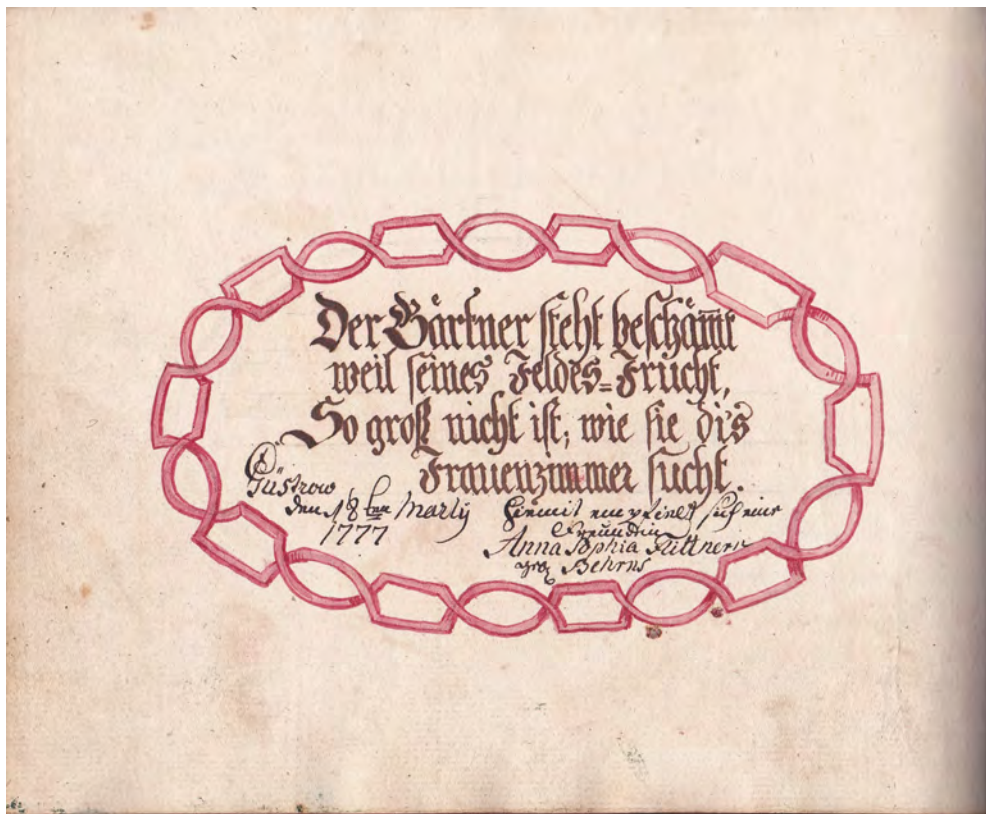 Der Gärtner steht beschäm̅t
weil seines Feldes=Frucht,
So groß nicht ist, wie sie dis
Frauenzimmer sucht.
Güstrow
den 18ten Martÿ
1777
Hiemit empfielt sich eine
Freundin
Anna Sophia
geb Behrns